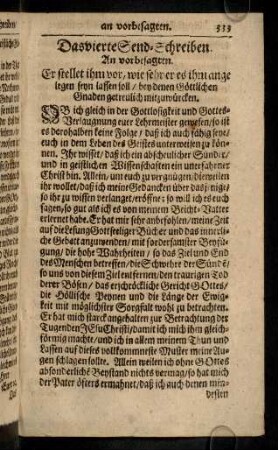 an vorbesagten. 533
Das vierte Send-Schreiben.
An vorbesagten.
Er stellet ihm vor, wie sehr er es ihm ange
legen seyn lassen soll / bey denen Göttlichen
Gnaden getreulich mitzuwürcken.
OB ich gleich in der Gottlosigkeit und Gottes-
Verlaugnung euer Lehrmeister gewesen, so ist
es derohalben keine Folge / daß ich auch fähig seye/
euch in dem Leben des Geistes unterweisen zu kön-
nen. Ihr wisset / daß ich ein abscheulicher Sünder/
und in geistlichen Wissenschaften ein unerfahrner
Christ bin. Allein/ um euch zu vergnügen/ dieweilen
ihr wollet/ daß ich meine Gedancken über das jenige/
so ihr zu wissen verlanget/ eröffne; so will ich es euch
sagen/ so gut als ich es von meinem Beicht-Vatter
erlernet habe. Er hat mir sehr anbefohlen/ meine Zeit
auf die Lesung Gottseeliger Bücher und das innerli-
che Gebätt anzuwenden/ mit sonderbarster Beyfü-
gung/ die hohe Wahrheiten / so das Ziel und End
des Menschen betreffen/ die Schwehre der Sünde/
so uns von diesem Ziel entfernet/ den traurigen Tod
derer Bösen / das erschröckliche Gericht Gottes/
die Höllische Peynen und die Länge der Ewig-
keit mit möglichster Sorgfalt wohl zu betrachten.
Er hat mich starck angehalten zur Betrachtung der
Tugenden JEsu Christi/ damit ich mich ihm gleich-
förmig machte/ und ich in allem meinem Thun und
Lassen auf dieses vollkommneste Muster meine Au-
gen schlagen sollte. Allein weilen ich ohne GOttes
absonderliche Beystand nichts vermag/ so hat mich
der Pater öfters ermahnet/ daß ich auch denen min-
desten